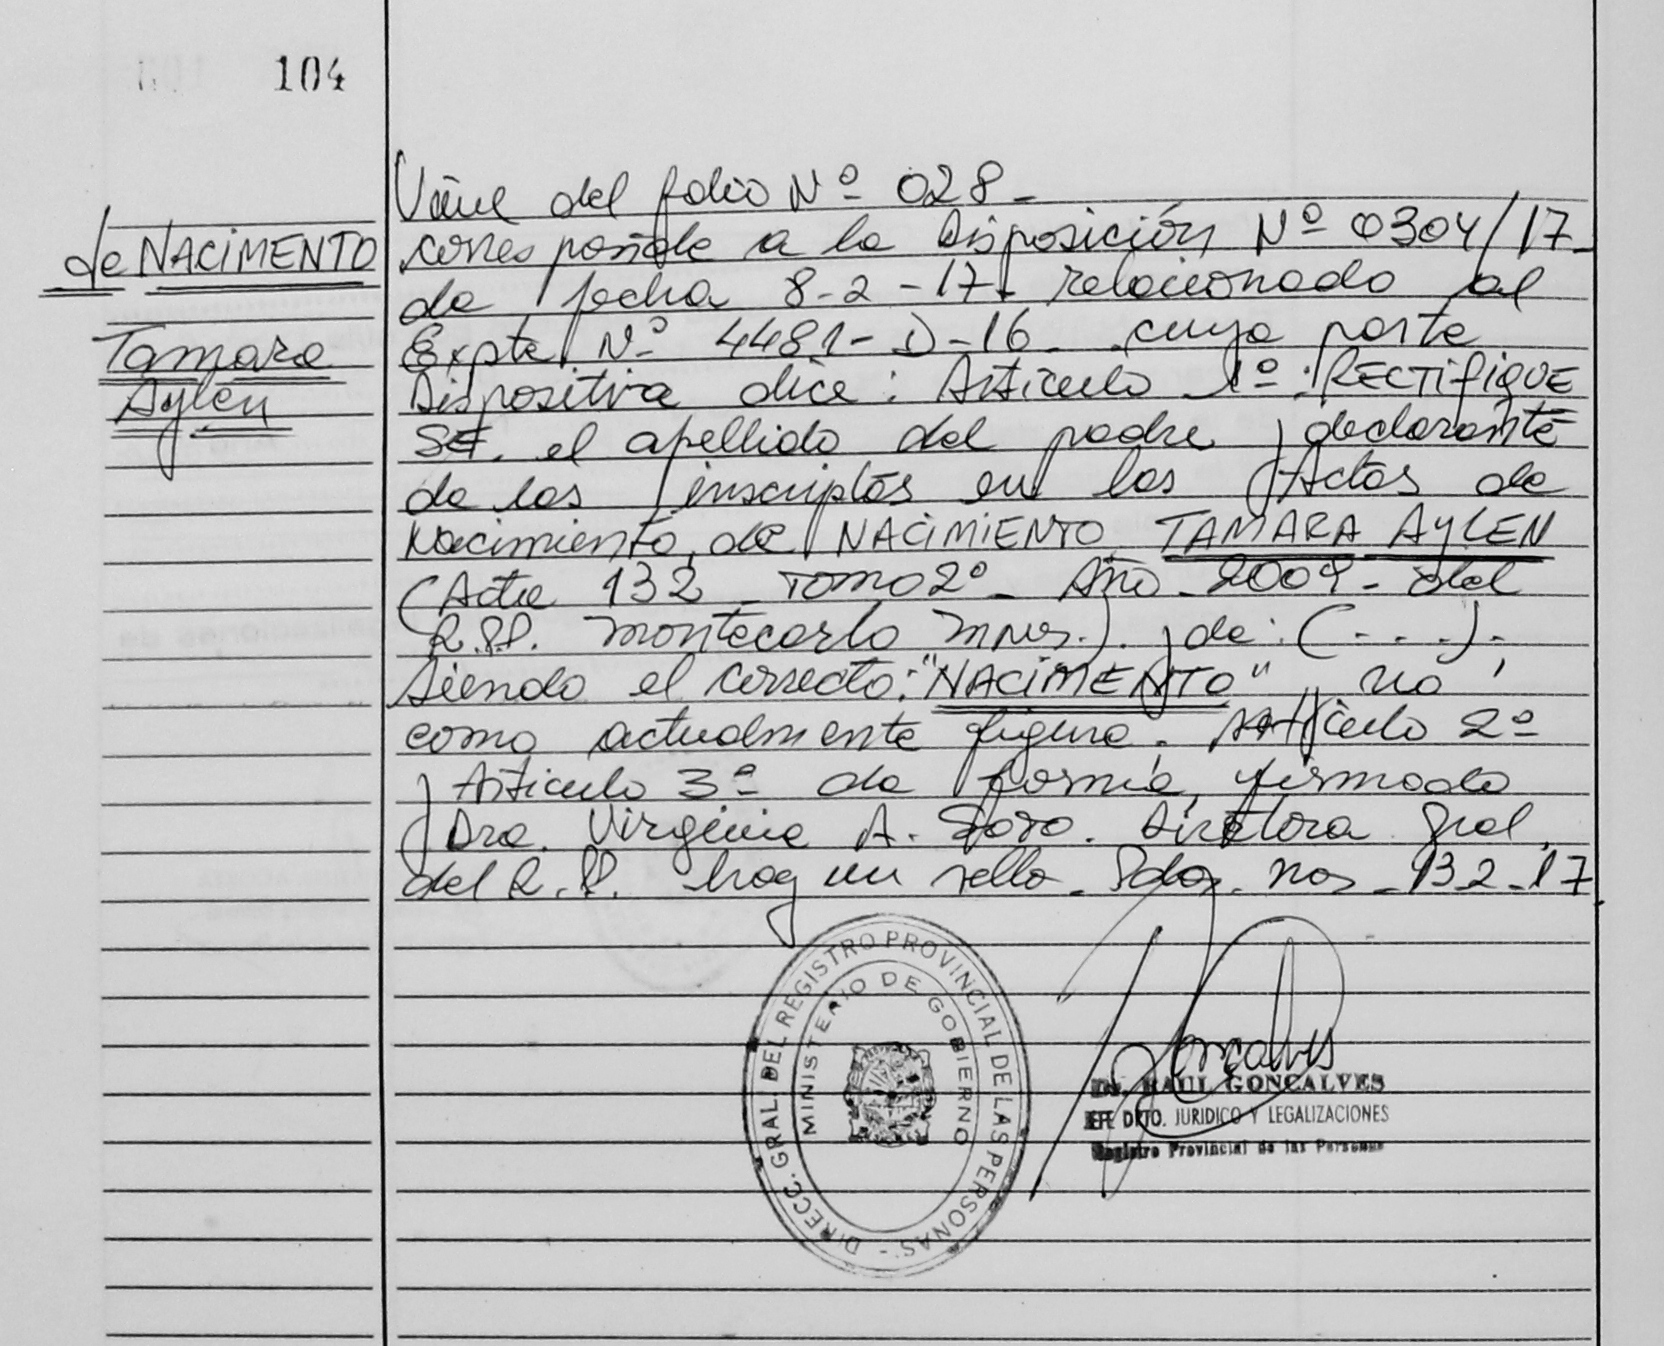 104
de NACIMENTO
Tamara
Aylén
Viene del folio Nº 028-
corresponde a la Disposición Nº 0304/17-
de fecha 8-2-17. relacionado al
Expte Nº 4481-D-16. cuya parte
Dispositiva dice: Artículo 1º: RECTIFIQUE
SE. el apellido del padre y declarante
de los inscriptos en las Actas de
Nacimiento, de NACIMIENTO TAMARA AYLEN
(Acta 132 - Tomo 2º - Año 2009 - del
R.P.P. Montecarlo Mnes.). y de: (- - -).
Siendo el correcto: "NACIMENTO" y no
como actualmente figura. Artículo 2º
y Artículo 3º de forma, firmado
Dra. Virginia A. Doro. Directora Gral.
del R.P. hay un sello. Pdas. Mns - 13 2 - 17
DIRECC. GRAL. DEL REGISTRO PROVINCIAL DE LAS PERSONAS -
MINISTERIO DE GOBIERNO
Goncalves
Dr. RAUL GONCALVES
JEFE DPTO. JURIDICO Y LEGALIZACIONES
Registro Provincial de las Personas